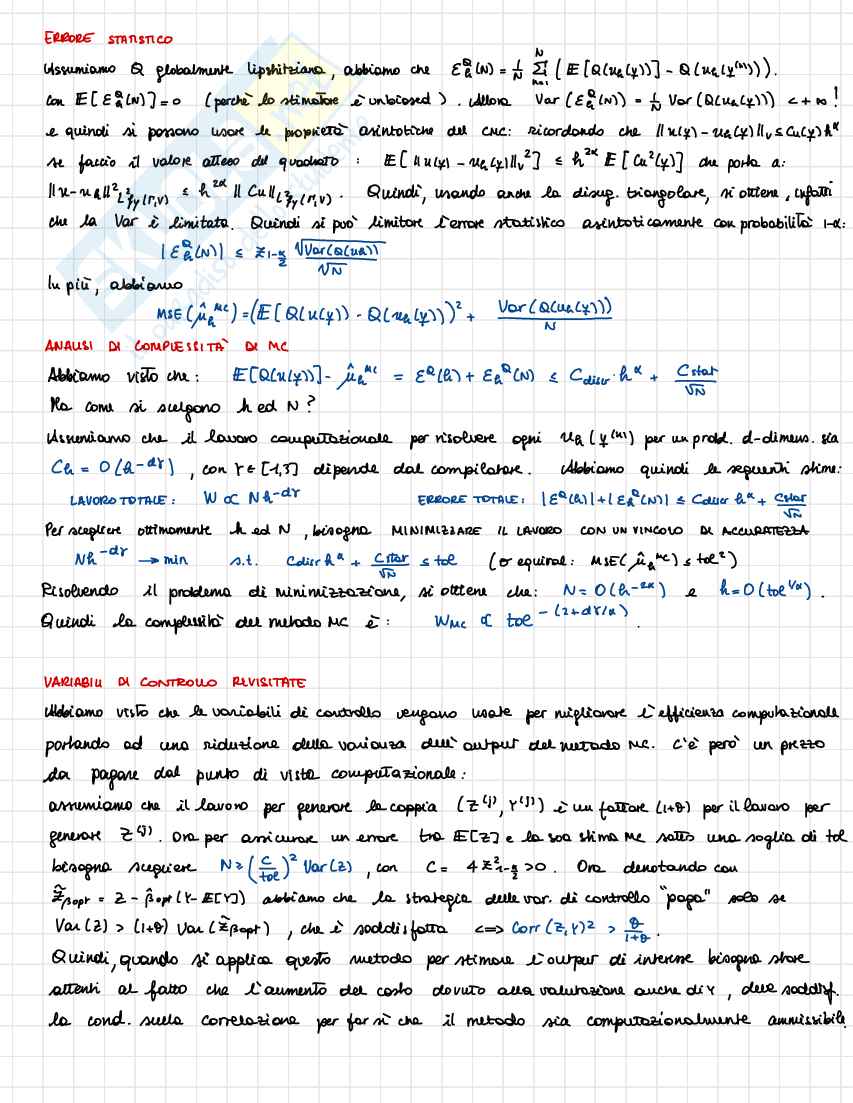 ERRORE STATISTICO
Assumiamo Q globalmente lipshitziana, abbiamo che ε_h^Q(N) = 1/N Σ_{n=1}^N (𝔼[Q(u_h(y))] - Q(u_h(y^(n)))).
con 𝔼[ε_h^Q(N)] = 0 (perchè lo stimatore è unbiased). Allora Var(ε_h^Q(N)) = 1/N Var(Q(u_h(y))) < +∞!
e quindi si possono usare le proprietà asintotiche del CLT: ricordando che ||u(y) - u_h(y)||_V ≤ C_u(y) h^α
se faccio il valore atteso del quadrato: 𝔼[||u(y) - u_h(y)||_V^2] ≤ h^{2α} 𝔼[C_u^2(y)] che porta a:
||u - u_h||^2_{L^2_{ρy}(Γ,V)} ≤ h^{2α} ||C_u||_{L^2_{ρy}(Γ,V)}. Quindi, usando anche la disug. triangolare, si ottiene, infatti
che la Var è limitata. Quindi si può limitare l'errore statistico asintoticamente con probabilità 1-α:
|ε_h^Q(N)| ≤ z_{1-α/2} √Var(Q(u_h)) / √N
In più, abbiamo
MSE(μ̂_h^MC) = (𝔼[Q(u(y)) - Q(u_h(y)))^2 + Var(Q(u_h(y))) / N
ANALISI DI COMPLESSITÀ DI MC
Abbiamo visto che: 𝔼[Q(u(y))] - μ̂_h^MC = ε^Q(h) + ε_h^Q(N) ≤ C_discr · h^α + C_stat / √N
Ma come si scelgono h ed N?
Assumiamo che il lavoro computazionale per risolvere ogni u_h(y^(n)) per un probl. d-dimens. sia
C_h = O(h^{-dγ}), con γ ∈ [1,3] dipende dal compilatore. Abbiamo quindi le seguenti stime:
LAVORO TOTALE: W ∝ N h^{-dγ} ERRORE TOTALE: |ε^Q(h)| + |ε_h^Q(N)| ≤ C_discr h^α + C_stat / √N
Per scegliere ottimamente h ed N, bisogna MINIMIZZARE IL LAVORO CON UN VINCOLO DI ACCURATEZZA
N h^{-dγ} → min s.t. C_discr h^α + C_stat / √N ≤ tol (o equival: MSE(μ̂_h^MC) ≤ tol^2)
Risolvendo il problema di minimizzazione, si ottiene che: N = O(h^{-2α}) e h = O(tol^{1/α}).
Quindi la complessità del metodo MC è: W_MC ∝ tol^{-(2+dγ/α)}.
VARIABILI DI CONTROLLO REVISITATE
Abbiamo visto che le variabili di controllo vengono usate per migliorare l'efficienza computazionale
portando ad una riduzione della varianza dell'output del metodo MC. C'è però un prezzo
da pagare dal punto di vista computazionale:
assumiamo che il lavoro per generare la coppia (Z^(j), Y^(j)) è un fattore (1+θ) per il lavoro per
generare Z^(j). Ora per assicurare un errore tra 𝔼[Z] e la sua stima MC sotto una soglia di tol
bisogna scegliere N ≥ (C/tol)^2 Var(Z), con C = 4 z^2_{1-α/2} > 0. Ora denotando con
Z̃_{βopt} = Z - β̂_opt(Y - 𝔼[Y]) abbiamo che la strategia delle var. di controllo "paga" solo se
Var(Z) > (1+θ) Var(Z̃_{βopt}), che è soddisfatta <=> Corr(Z,Y)^2 > θ/(1+θ).
Quindi, quando si applica questo metodo per stimare l'output di interesse bisogna stare
attenti al fatto che l'aumento del costo dovuto alla valutazione anche di Y, deve soddisf.
la cond. sulla correlazione per far sì che il metodo sia computazionalmente ammissibile.